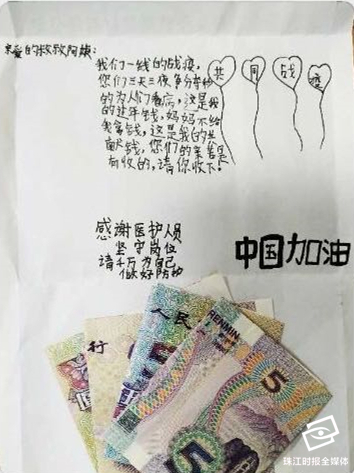 亲爱的叔叔阿姨：
我们一线的战疫，
您们三天三夜争分夺秒
的为人们看病，这是我
的过年钱，妈妈不给
我拿钱，这是我的
钱，您们的
有收的，请你收下！
共同战疫
感谢医护人员
坚守岗位
请千万为自己
做好防护
中国加油
行
人民
RENMIN
5
5
珠江时报全媒体